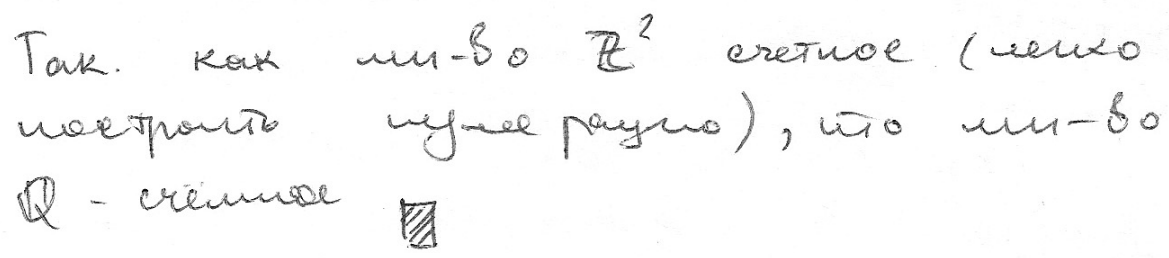 Так. как мн-во ℤ² счетное (легко
построить нумерацию), то мн-во
ℚ - счётное